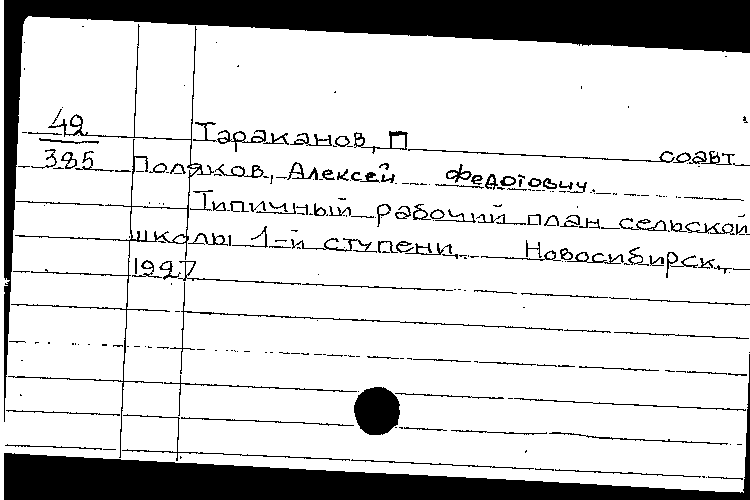 42
385
Тараканов, П соавт.
Поляков, Алексей Федотович.
Типичный рабочий план сельской
школы 1-й ступени. Новосибирск,
1927